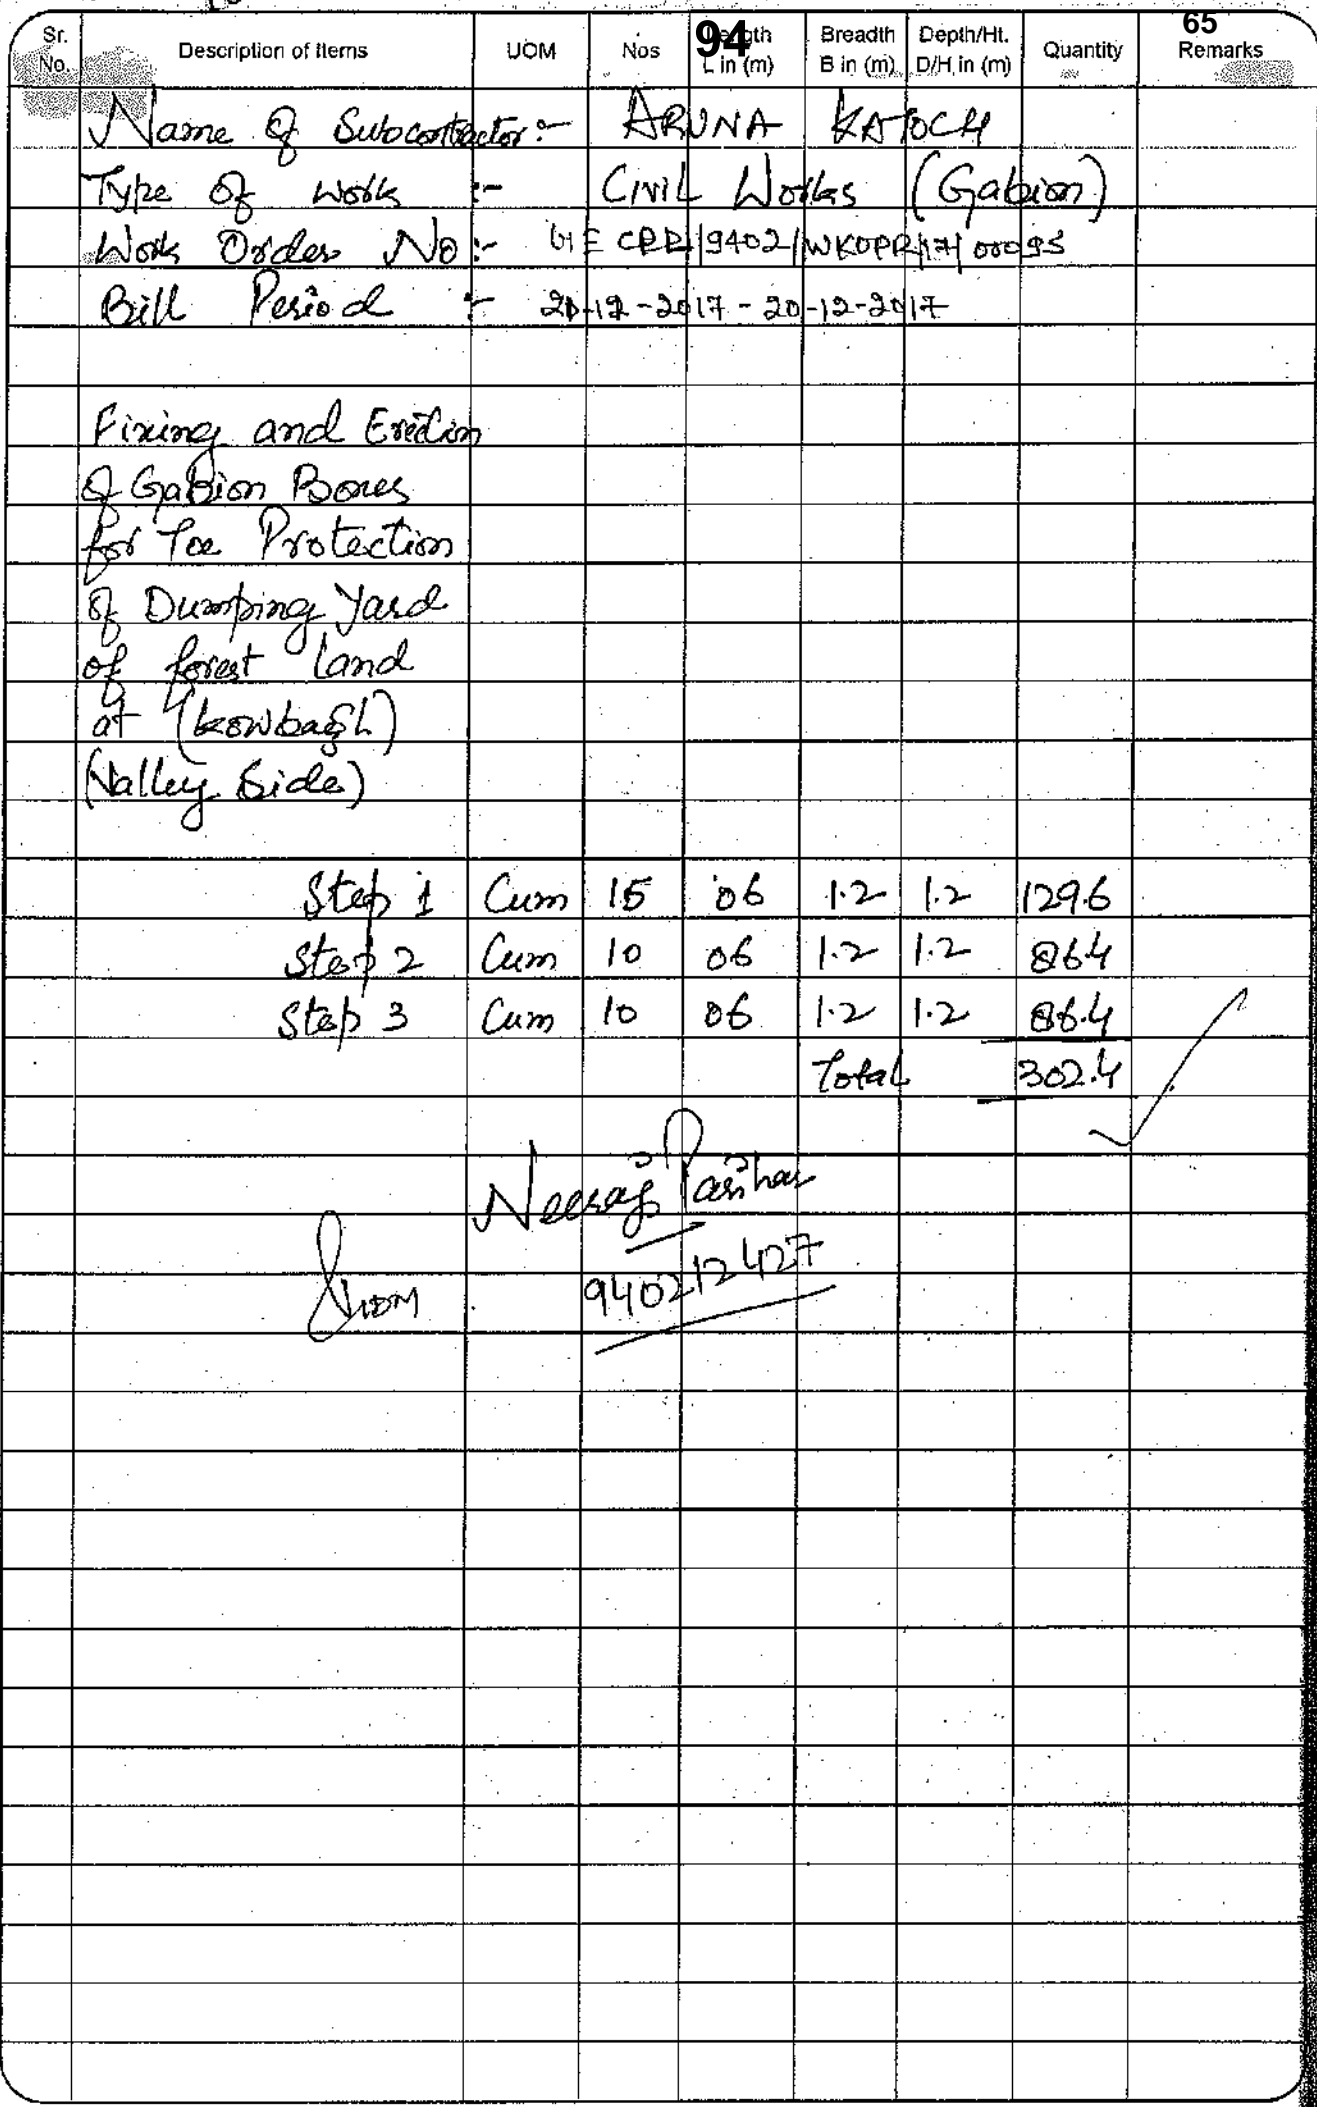 94
65
Sr. No. Description of Items UOM Nos Length L in (m) Breadth B in (m) Depth/Ht. D/H in (m) Quantity Remarks
Name of Subcontractor:- ARUNA KATOCH
Type of work :- Civil Works (Gabion)
Work Order No:- CRR/9402/WKOPR/17/00095
Bill Period :- 20-12-2017 - 20-12-2017
Fixing and Erection
of Gabion Boxes
for Toe Protection
of Dumping Yard
of forest Land
at (kowbagh)
(Valley Side)
Step 1 Cum 15 06 1.2 1.2 129.6
Step 2 Cum 10 06 1.2 1.2 864
Step 3 Cum 10 06 1.2 1.2 86.4
Total 302.4
Neeraj Parihar
940212427